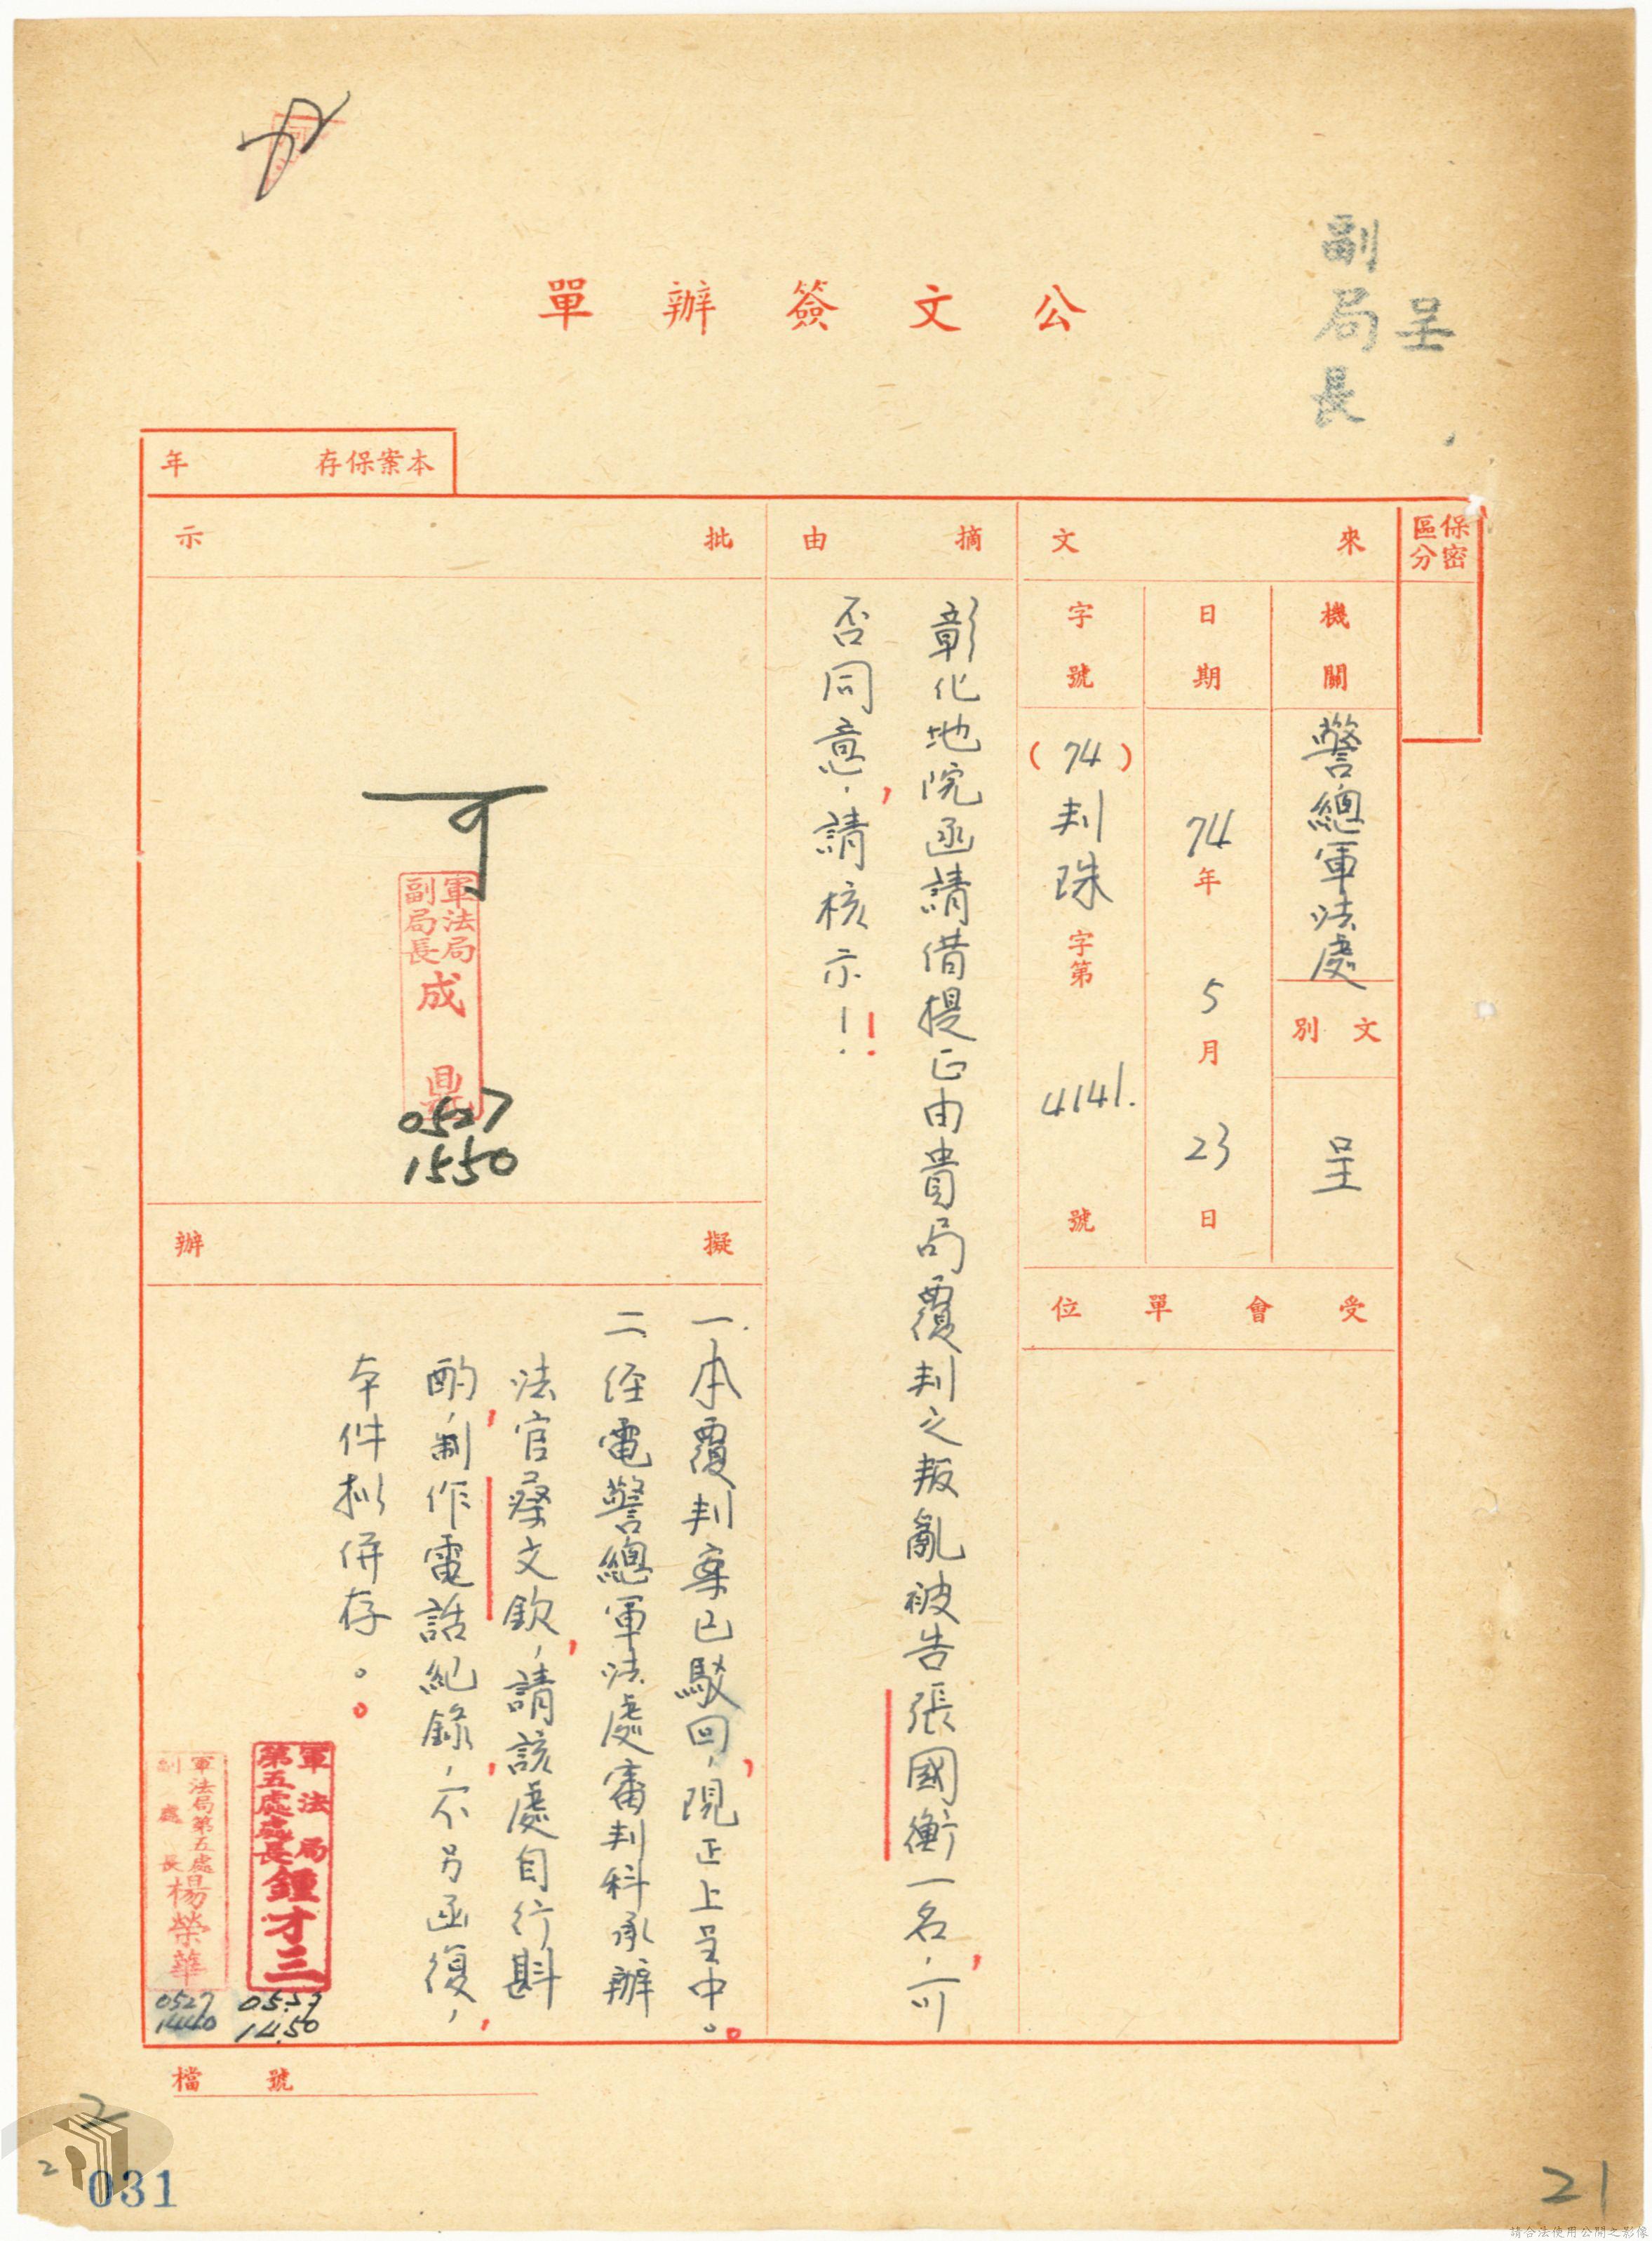 呈
副局長
公文簽辦單
本案保存　年
保密區分
來文
機關
警總軍法處
文別
呈
日期
74年5月23日
字號
(74)判珠字第4141.號
受會單位
摘由
彰化地院函請借提正由貴局覆判之叛亂被告張國衡一名，可
否同意，請核示！
批示
可
軍法局
副局長
成鼎
0527
1550
擬辦
一.本覆判案已駁回，現正上呈中。
二.經電警總軍法處審判科承辦
法官桑文欽，請該處自行斟
酌，制作電話紀錄，不另函復，
本件擬併存。
軍法局
第五處處長
鍾才三
0527
1450
軍法局第五處
副處長
楊榮華
0527
1440
檔號
2
2
031
21
請合法使用公開之影像